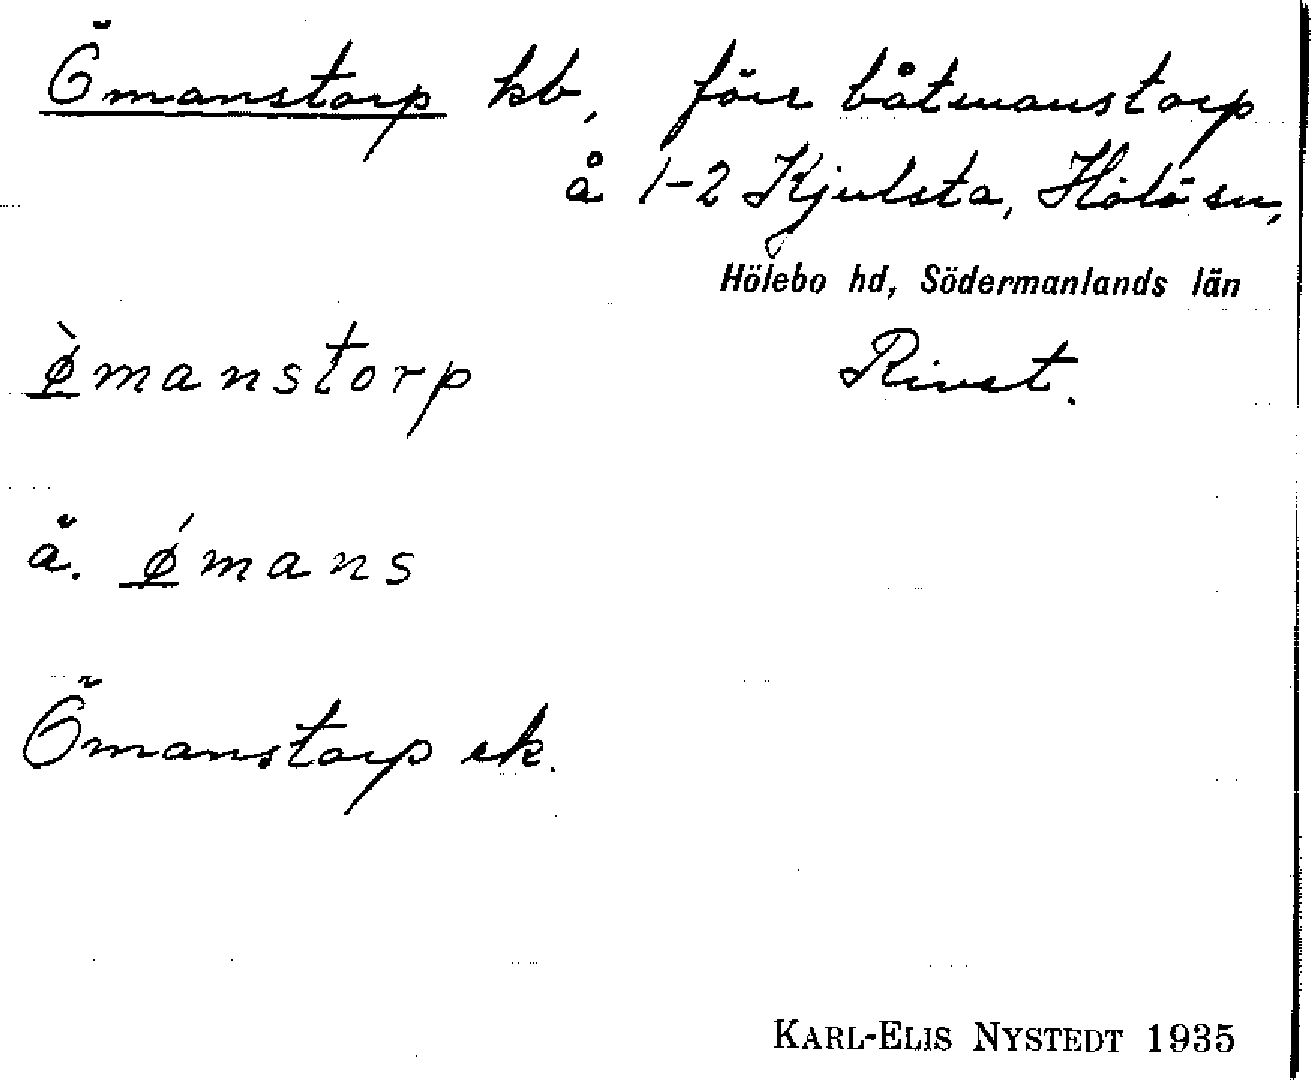 Ömanstorp hb, förr båtmanstorp
å 1-2 Kjulsta, Hölö sn,
Hölebo hd, Södermanlands län
ø̀manstorp Rivet.
ä. ǿmans
Ömanstorp ek.
KARL-ELIS NYSTEDT 1935